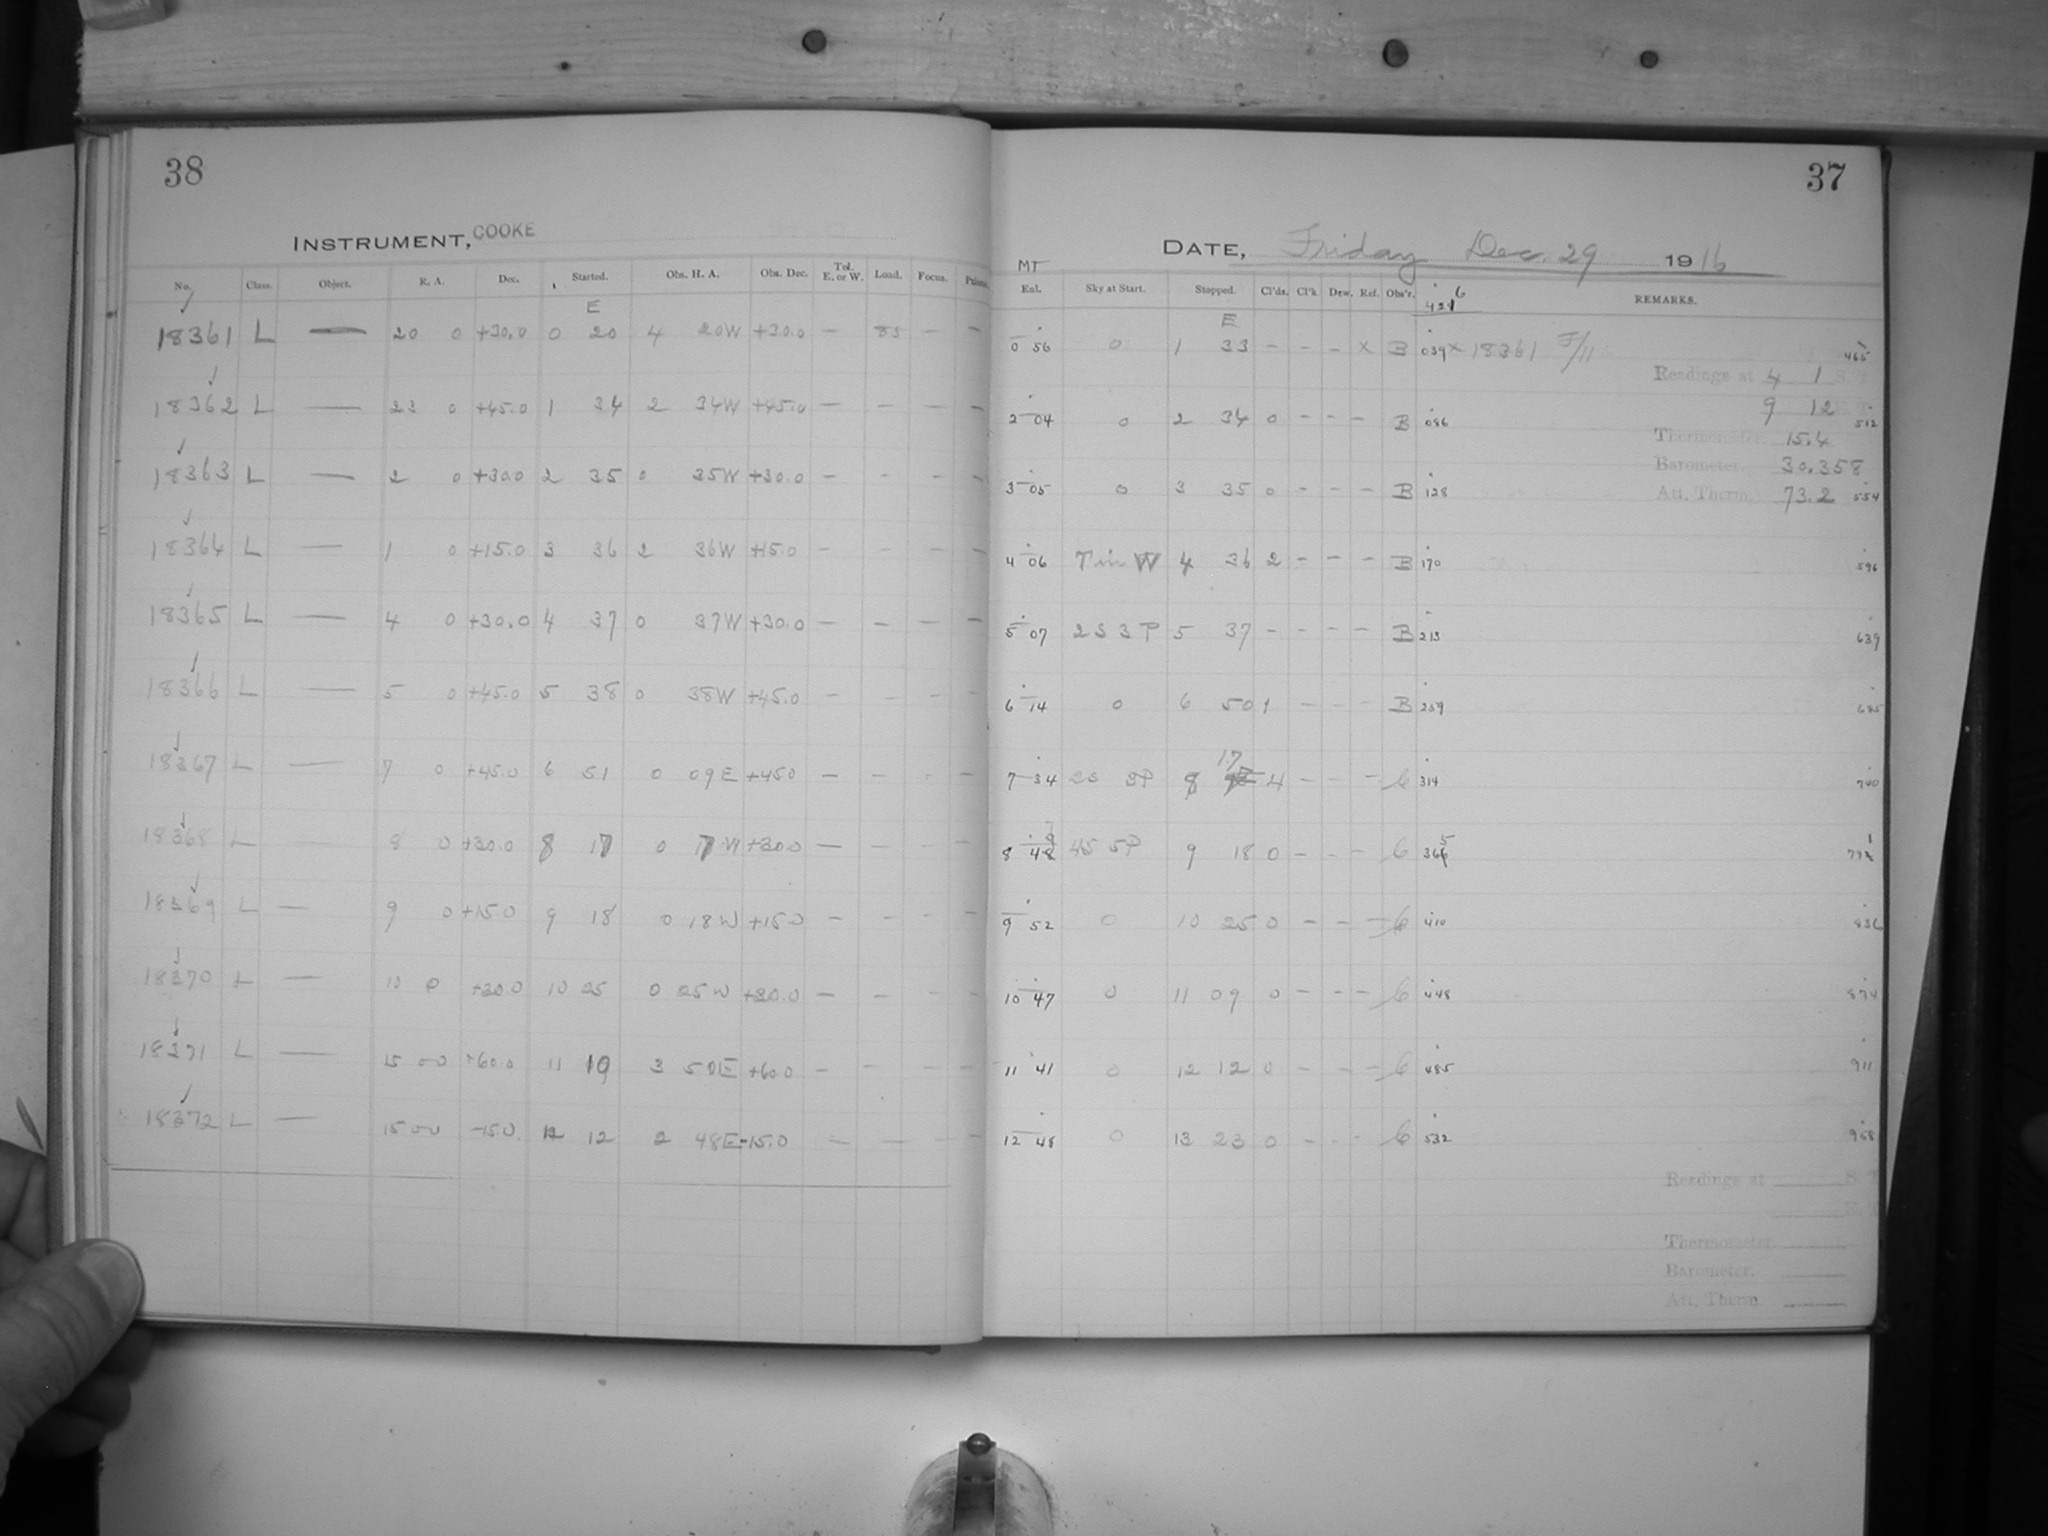 38
INSTRUMENT, COOKE
No. Class. Object. R. A. Dec. Started. Obs. H. A. Obs. Dec. Tel. E. or W. Load. Focus.
E
18361 L — 20 0 +30.0 0 20 4 20W +30.0 — 85 — —
18362 L — 23 0 +45.0 1 34 2 34W +45.0 — — — —
18363 L — 2 0 +30.0 2 35 0 35W +30.0 — — — —
18364 L — 1 0 +15.0 3 36 2 36W +15.0 — — — —
18365 L — 4 0 +30.0 4 37 0 37W +30.0 — — — —
18366 L — 5 0 +45.0 5 38 0 38W +45.0 — — — —
18367 L — 7 0 +45.0 6 51 0 09E +45.0 — — — —
18368 L — 8 0 +30.0 8 17 0 17W +30.0 — — — —
18369 L — 9 0 +15.0 9 18 0 18W +15.0 — — — —
18370 L — 10 0 +30.0 10 25 0 25W +30.0 — — — —
18371 L — 15 00 +60.0 11 10 3 50E +60.0 — — — —
18372 L — 15 00 -15.0 12 12 2 48E -15.0 — — — —
37
DATE, Friday Dec. 29 1916
MT
Exl. Sky at Start. Stopped. Cl'ds. Cl'k. Dew. Ref. Obs'r. REMARKS.
E
0 56 0 1 33 - - - x B 039 x 18361 F/11 465
Readings at 4 1 S. T.
9 12
2 04 0 2 34 0 - - - B 086 512
Thermometer. 15.4
Barometer. 30.358
3 05 0 3 35 0 - - - B 128 554
Att. Therm. 73.2
4 06 T in W 4 36 2 - - - B 170 596
5 07 2S 3P 5 37 - - - - B 213 639
6 14 0 6 50 1 - - - B 259 685
17
7 34 2S 3P 8 4 - - - C 314 740
8 49 4S 5P 9 18 0 - - - C 365 791
9 52 0 10 25 0 - - - C 410 836
10 47 0 11 09 0 - - - C 448 874
11 41 0 12 12 0 - - - C 485 911
12 48 0 13 23 0 - - - C 532 958
Readings at S. T.
Thermometer.
Barometer.
Att. Therm.